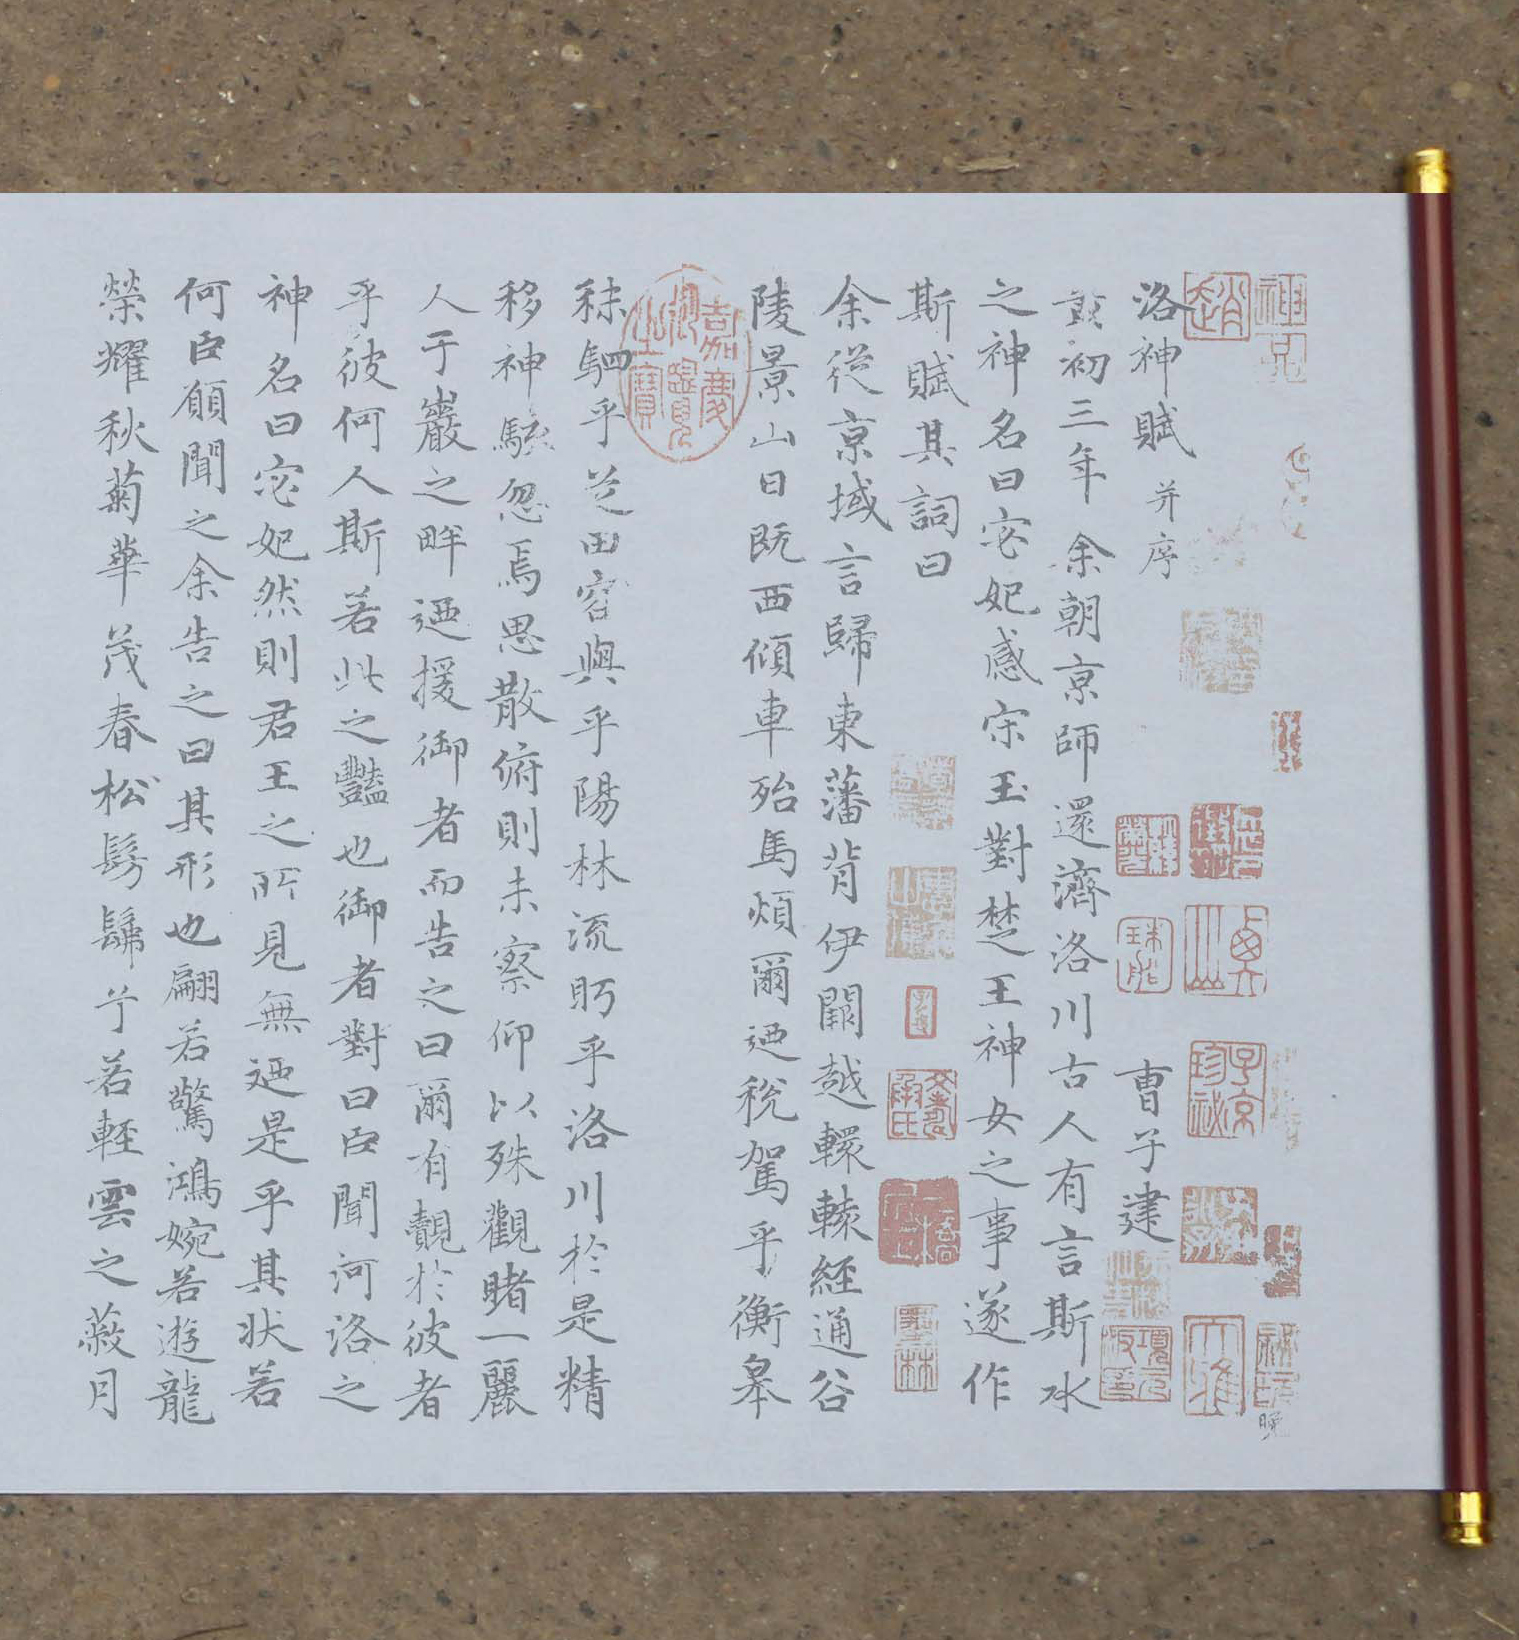 洛神賦 并序 曹子建
黃初三年余朝京師還濟洛川古人有言斯水
之神名曰宓妃感宋玉對楚王神女之事遂作
斯賦其詞曰
余從京域言歸東藩背伊闕越轘轅經通谷
陵景山日既西傾車殆馬煩爾迺稅駕乎蘅皋
秣駟乎芝田容與乎陽林流眄乎洛川於是精
移神駭忽焉思散俯則未察仰以殊觀睹一麗
人于巖之畔迺援御者而告之曰爾有覿於彼者
乎彼何人斯若此之豔也御者對曰臣聞河洛之
神名曰宓妃然則君王之所見無迺是乎其狀若
何臣願聞之余告之曰其形也翩若驚鴻婉若遊龍
榮耀秋菊華茂春松髣髴兮若輕雲之蔽月
趙
嘉慶御覽之寶
子京珍祕
大雅
晚